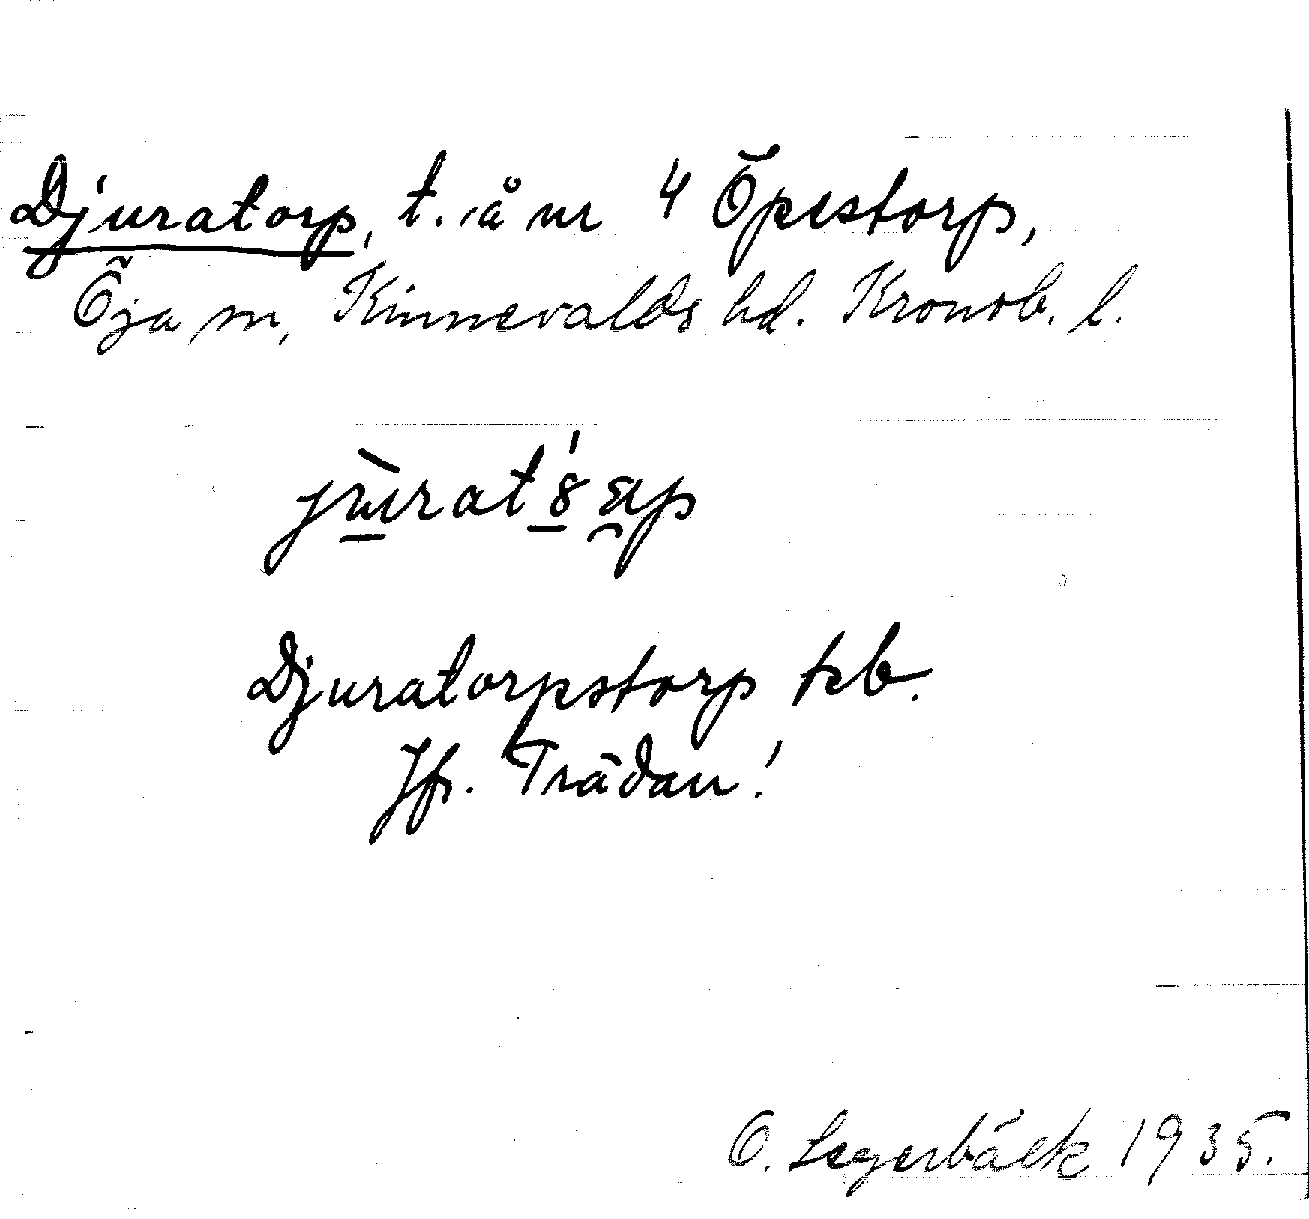 Djuratorp, t. å nr 4 Öpestorp,
Öja sn, Kinnevalds hd. Kronob. l.
Djuratorpstorp kb.
Jfr. Trädan!
O. Segerbäck 1935.